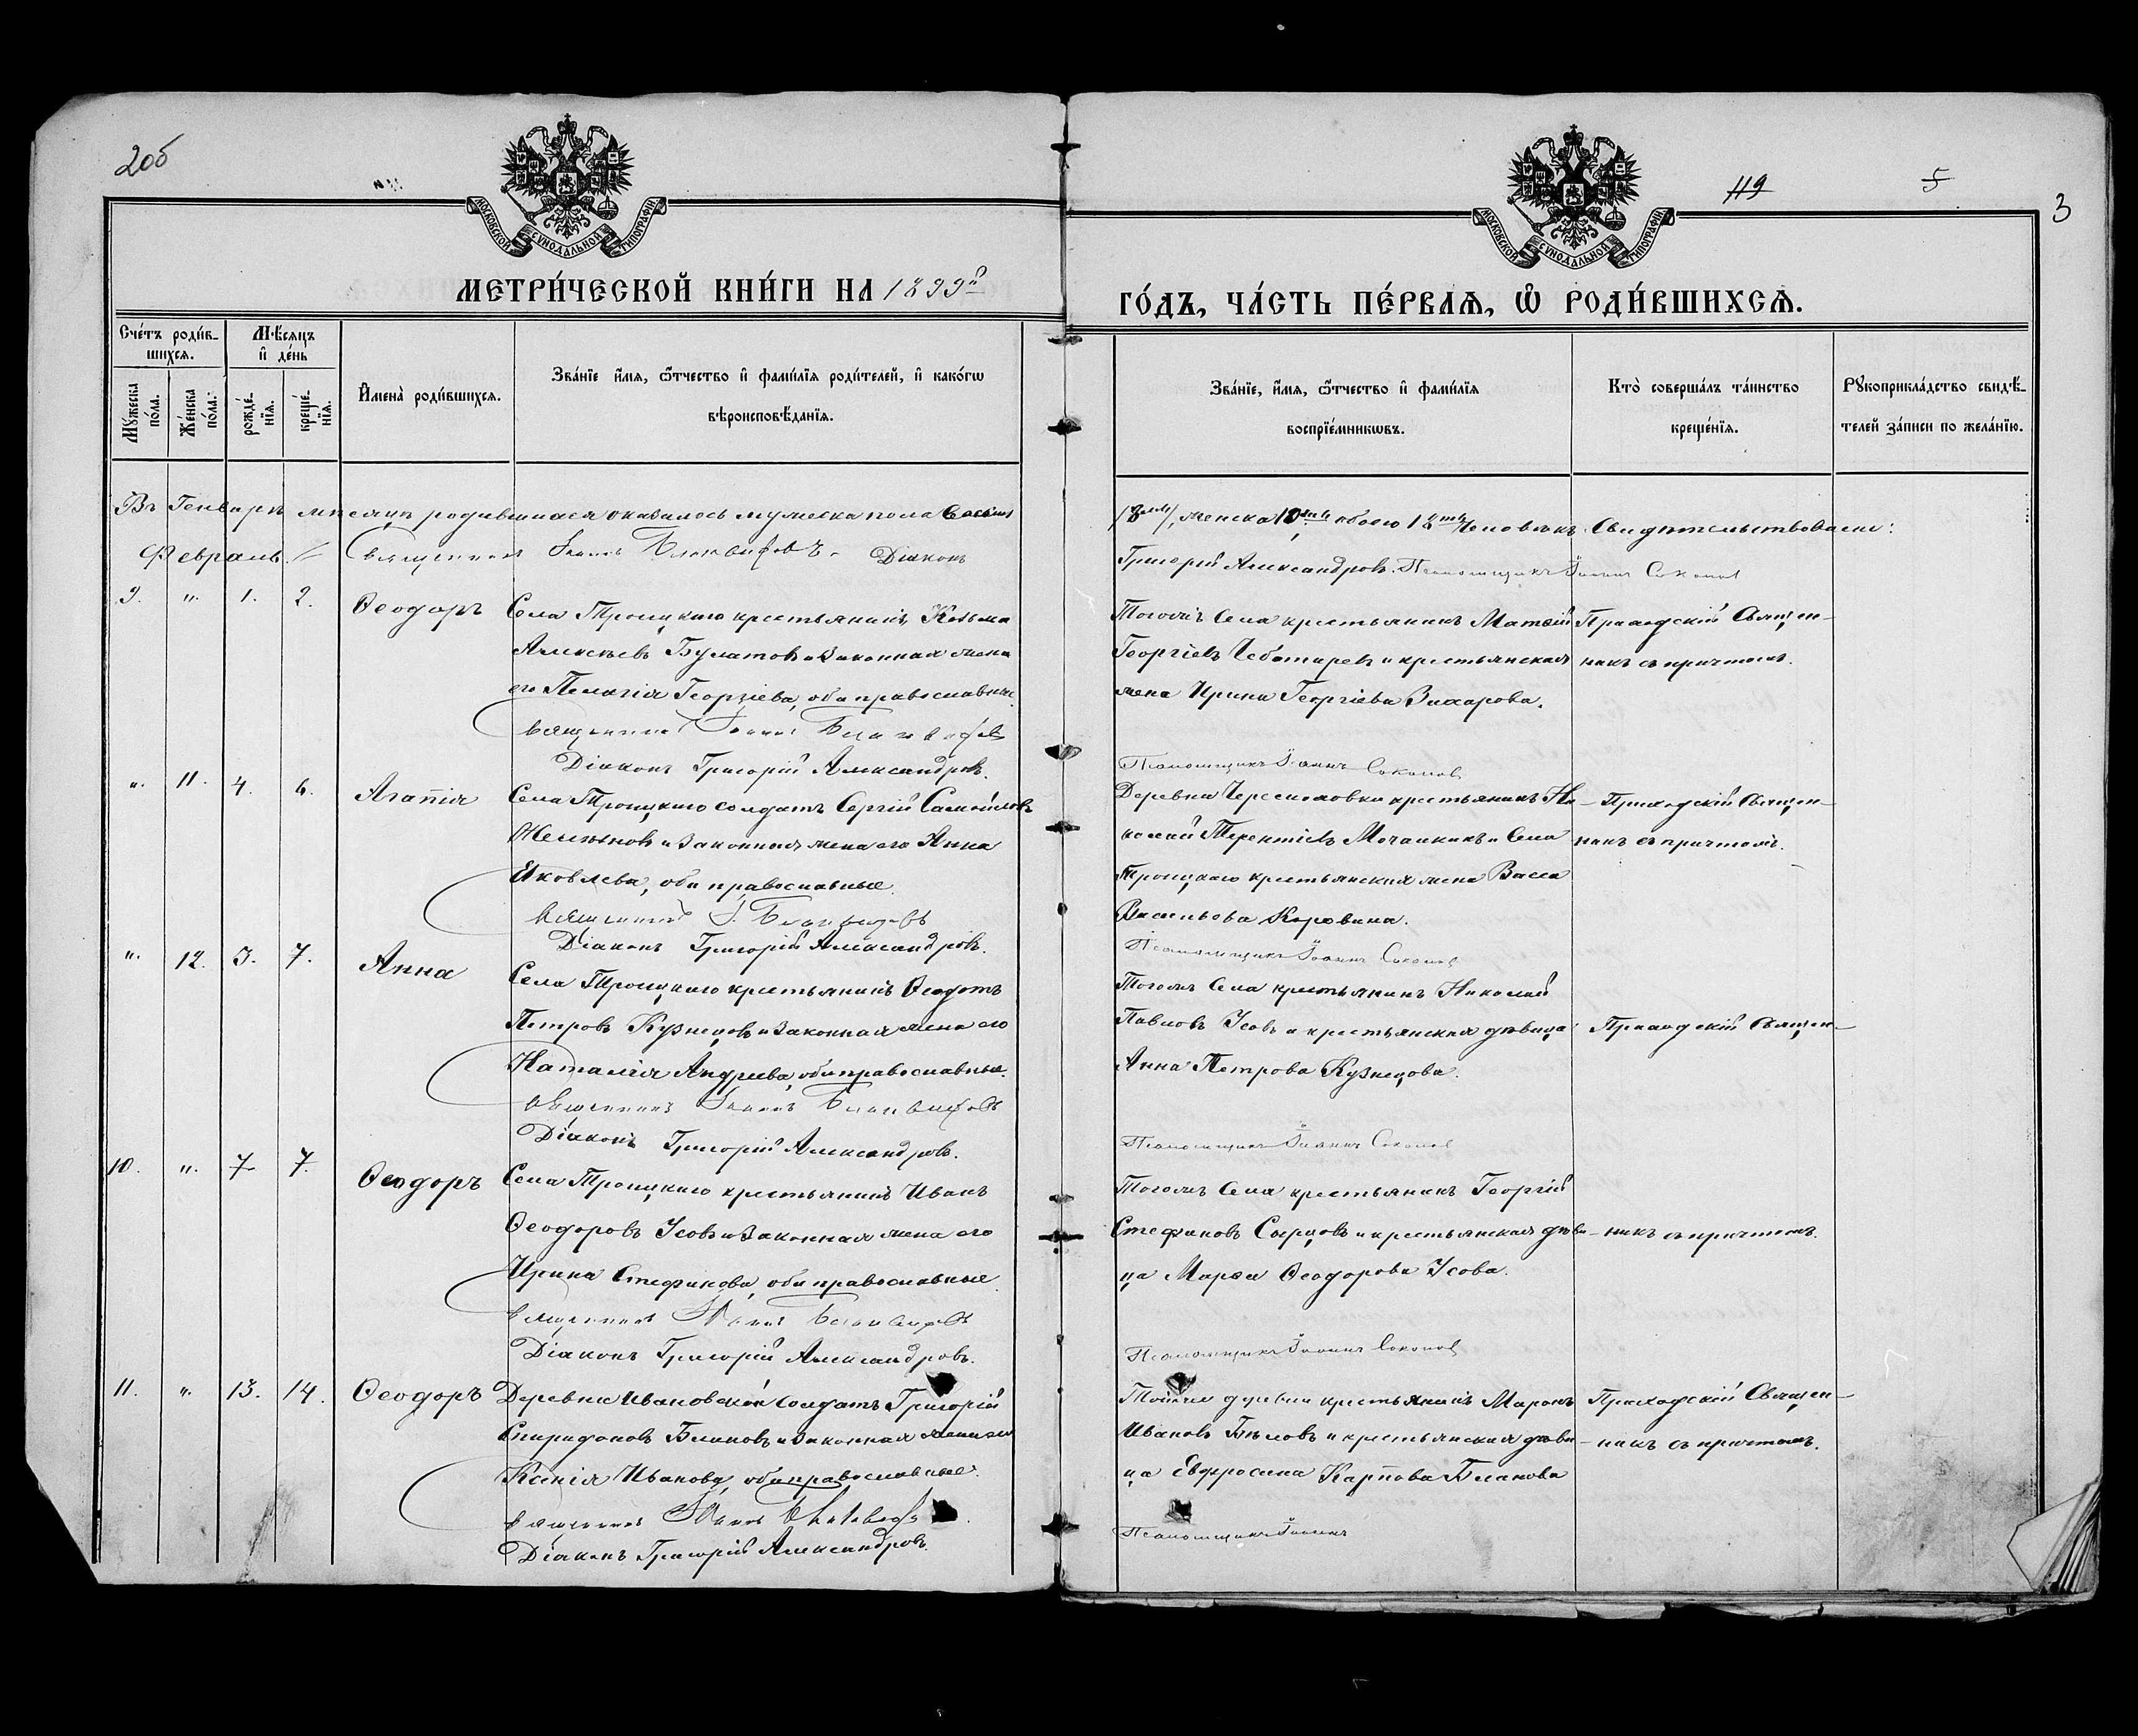 2об
119
5
3
МОСКОВСКОЙ СѴНОДАЛЬНОЙ ТИПОГРАФІИ
МОСКОВСКОЙ СѴНОДАЛЬНОЙ ТИПОГРАФІИ
МЕТРИ́ЧЕСКОЙ КНИ́ГИ НА 1899й
ГО́ДЪ, ЧА́СТЬ ПЕ́РВАѦ, Ѡ҆ РОДИ́ВШИХСѦ.
Сче́тъ роди́в-
шихсѧ.
Мѣ́сѧцъ
и҆ де́нь
Мꙋ́жеска по́ла.
Же́нска по́ла.
рожде́-нїѧ.
креще́-нїѧ.
И҆мена̀ роди́вшихсѧ.
Зва́нїе и҆́мѧ, ѻ҆́тчество и҆ фами́лїѧ роди́телей, и҆ како́гѡ
вѣроисповѣ́данїѧ.
Зва́нїе, и҆́мѧ, ѻ҆́тчество и҆ фами́лїѧ
воспрїе́мникѡвъ.
Кто̀ соверша́лъ та́инство
креще́нїѧ.
Рꙋкоприкла́дство свидѣ́-
телей за́писи по жела́нїю.
Въ Генваръ мѣсяцъ родившихся оказалось мужеска пола восемь
/8мь/, женска 10ть обоего 18ть человѣкъ. Свидѣтельствовали:
Февраль. Священникъ Іоаннъ Діаконъ
Григорій Александровъ. Псаломщикъ Іоаннъ Соколов
9. „ 1. 2. Ѳеодоръ
Села Троицкаго крестьянинъ Козьма
Алексѣевъ Булатовъ и законная жена
его Пелагія Георгіева, оба православные.
Священникъ Іоаннъ
Діаконъ Григорій Александровъ.
Тогожъ села крестьянинъ Матѳій
Георгіевъ Чеботаревъ и крестьянская
жена Ирина Георгіева Захарова.
Псаломщикъ Іоаннъ Соколов
Приходскій Священ-
никъ съ причтомъ.
„ 11. 4. 6. Агапія
Села Троицкаго солдатъ Сергій Самойловъ
и законная жена его Анна
Яковлева, оба православные.
Священникъ І.
Діаконъ Григорій Александровъ.
Деревни крестьянинъ Ни-
колай Терентіевъ и села
Троицкаго крестьянская жена Васса
Васильева Коровина.
Псаломщикъ Іоаннъ Соколов
Приходскій Священ-
никъ съ причтомъ.
„ 12. 3. 7. Анна
Села Троицкаго крестьянинъ Ѳеодотъ
Петровъ Кузнецовъ и законная жена его
Наталія Андреева, оба православные.
Священникъ Іоаннъ
Діаконъ Григорій Александровъ.
Тогожъ села крестьянинъ Николай
Павловъ Усовъ и крестьянская дѣвица
Анна Петрова Кузнецова.
Псаломщикъ Іоаннъ Соколов
Приходскій Священ-
10. „ 7 7. Ѳеодоръ
Села Троицкаго крестьянинъ Иванъ
Ѳеодоровъ Усовъ и законная жена его
Ирина Стефанова, оба православные.
Священникъ Іоаннъ
Діаконъ Григорій Александровъ.
Тогожъ села крестьянинъ Георгій
Стефановъ Сырцовъ и крестьянская дѣви-
ца Марѳа Ѳеодорова Усова.
Псаломщикъ Іоаннъ Соколов
никъ съ причтомъ.
11. „ 13. 14. Ѳеодоръ
Деревни Ивановской солдатъ Григорій
Спиридоновъ Блиновъ и законная жена его
Ксенія Иванова, оба православные.
Священникъ Іоаннъ
Діаконъ Григорій Александровъ.
Тойже деревни крестьянинъ Маронъ
Ивановъ Бѣловъ и крестьянская дѣви-
ца Евфросина Карпова Блинова
Псаломщикъ Іоаннъ
Приходскій Священ-
никъ съ причтомъ.